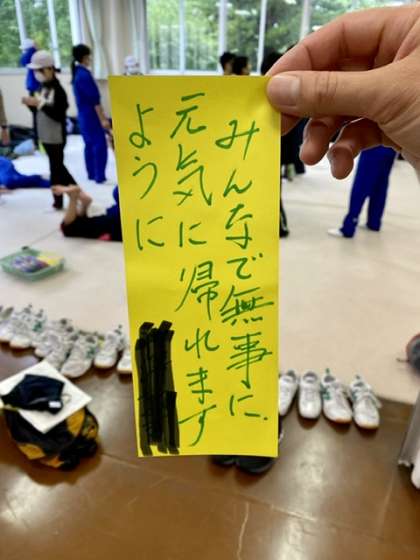 みんなで無事に
元気に帰れます
ように